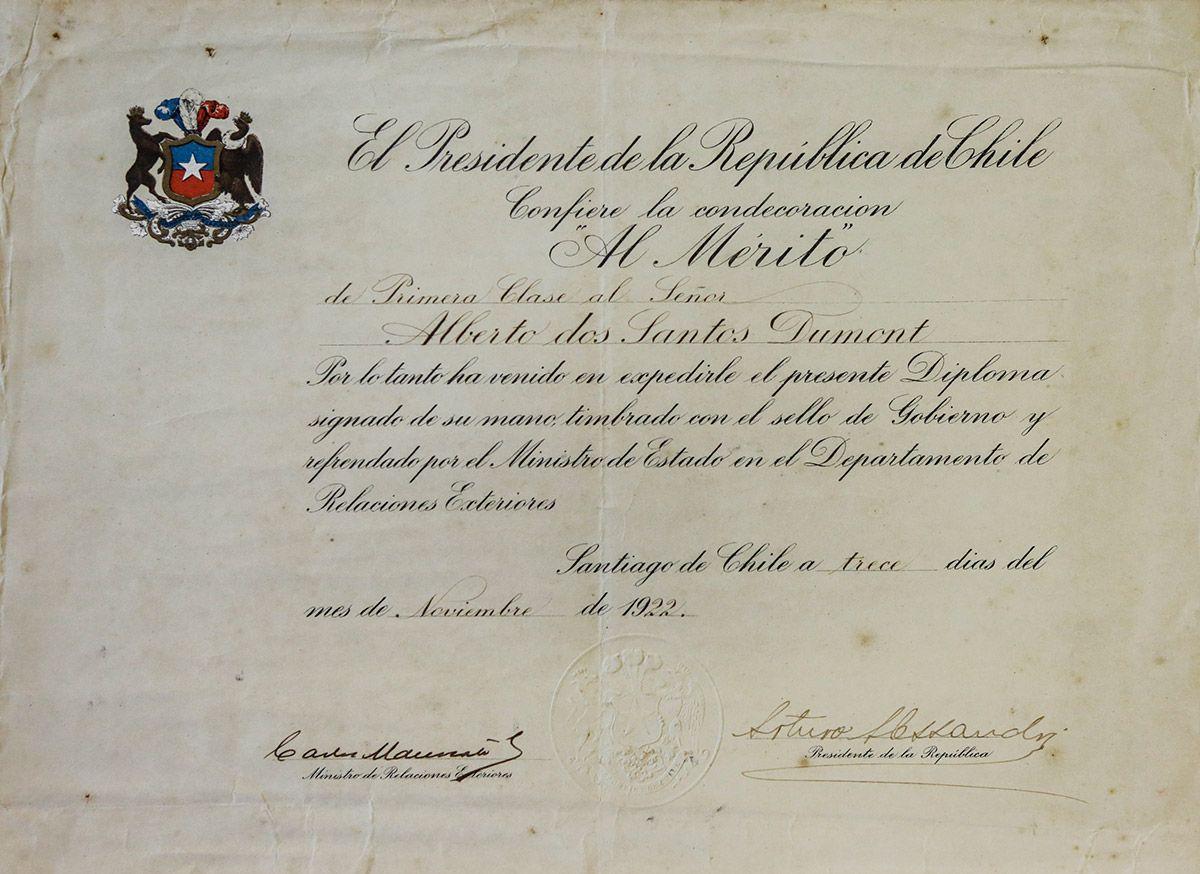 El Presidente de la República de Chile
Confiere la condecoracion
"Al Mérito"
de Primera Clase al Señor
Alberto dos Santos Dumont
Por lo tanto ha venido en expedirle el presente Diploma
signado de su mano, timbrado con el sello de Gobierno y
refrendado por el Ministro de Estado en el Departamento de
Relaciones Exteriores
Santiago de Chile a trece dias del
mes de Noviembre de 1922.
Arturo Alessandri
Presidente de la República
Carlos
Ministro de Relaciones Exteriores